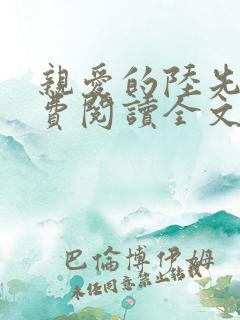 親愛的陸先
費閱讀全文
巴倫博伊姆
未经同意禁止转载